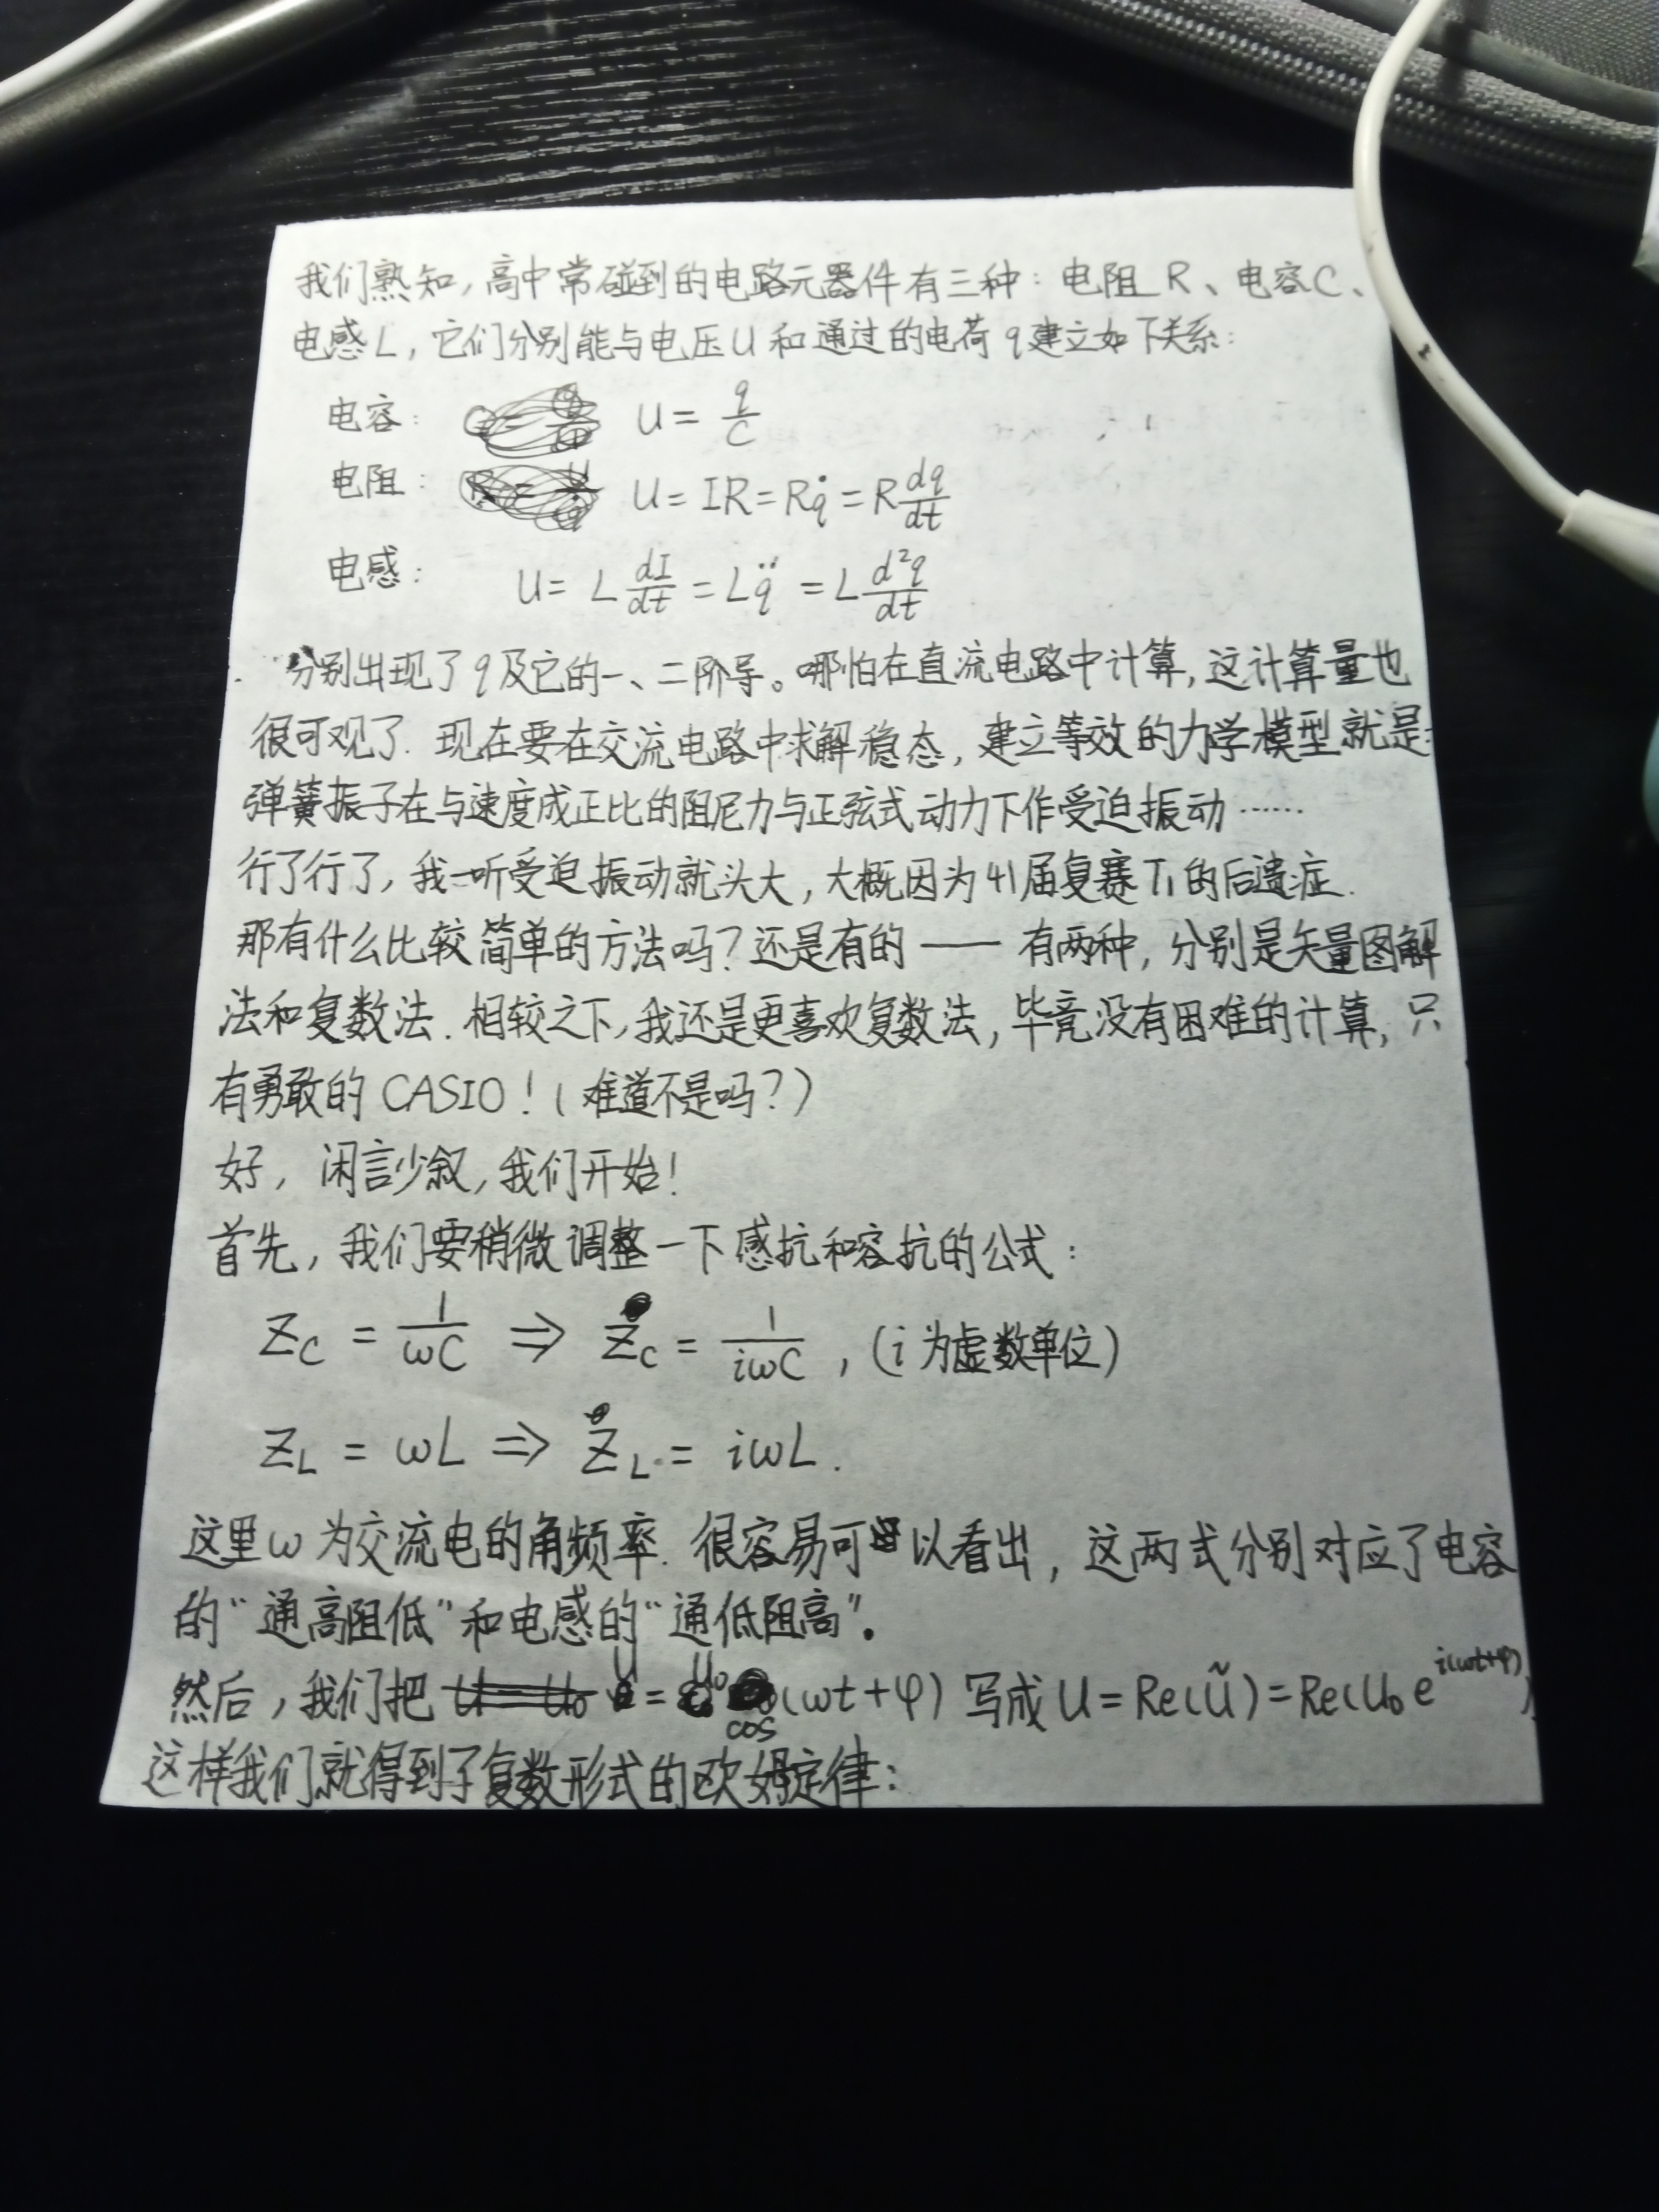 我们熟知,高中常碰到的电路元器件有三种:电阻R、电容C、
电感L,它们分别能与电压U和通过的电荷q建立如下关系:
电容: U = q/C
电阻: U = IR = Rq̇ = R dq/dt
电感: U = L dI/dt = Lq̈ = L d²q/dt
分别出现了q及它的一、二阶导。哪怕在直流电路中计算,这计算量也
很可观了.现在要在交流电路中求解稳态,建立等效的力学模型就是:
弹簧振子在与速度成正比的阻尼力与正弦式动力下作受迫振动……
行了行了,我一听受迫振动就头大,大概因为41届复赛T1的后遗症.
那有什么比较简单的方法吗?还是有的——有两种,分别是矢量图解
法和复数法.相较之下,我还是更喜欢复数法,毕竟没有困难的计算,只
有勇敢的CASIO!(难道不是吗?)
好,闲言少叙,我们开始!
首先,我们要稍微调整一下感抗和容抗的公式:
Z_C = 1/ωC ⇒ Z_C = 1/iωC ,(i为虚数单位)
Z_L = ωL ⇒ Z_L = iωL.
这里ω为交流电的角频率.很容易可以看出,这两式分别对应了电容
的“通高阻低”和电感的“通低阻高”.
然后,我们把 U = U₀cos(ωt+φ) 写成 U = Re(Ũ) = Re(U₀e^{i(ωt+φ)})
这样我们就得到了复数形式的欧姆定律: